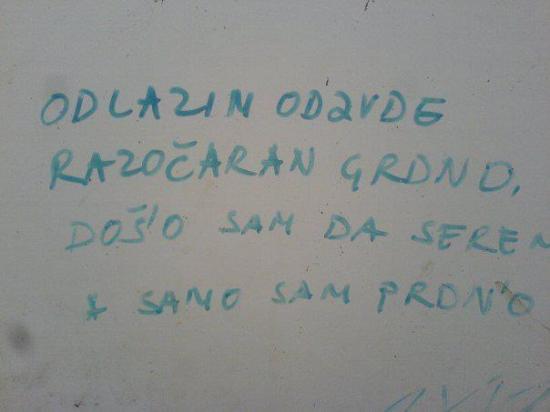 ODLAZIM ODAVDE
RAZOČARAN GRDNO,
DOŠ'O SAM DA SEREM
A SAMO SAM PRDN'O